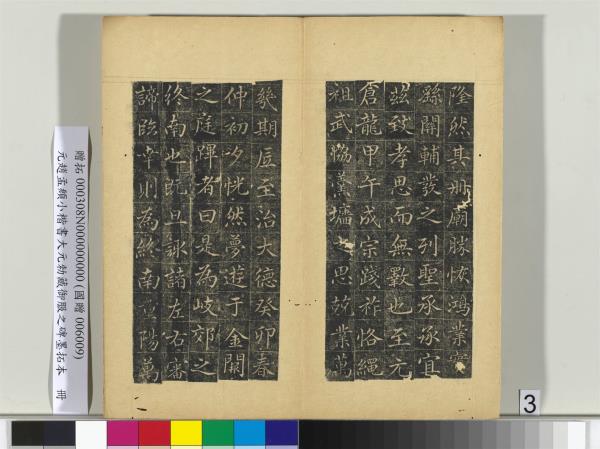 隆然其冊廟勝恢鴻業實
繇關輔發之列聖承承宜
茲致孝思而無斁也至元
倉龍甲午成宗踐祚恪繩
祖武協漢墻之思兢業萬
幾期底至治大德癸卯春
仲初夕恍然夢遊于金闕
之庭蹕者曰是為岐郊之
終南也既旦諏諸左右審
諦臨幸則為終南 陽萬
贈拓 000308N000000000 (國贈 006009)
元趙孟頫小楷書大元勅藏御服之碑墨拓本 冊
3